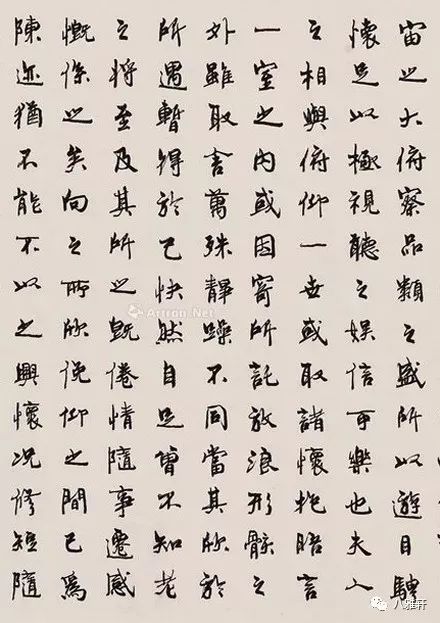 宙之大俯察品類之盛所以遊目騁
懷足以極視聽之娛信可樂也夫人
之相與俯仰一世或取諸懷抱晤言
一室之內或因寄所託放浪形骸之
外雖取舍萬殊靜躁不同當其欣於
所遇暫得於己快然自足曾不知老
之將至及其所之既倦情隨事遷感
慨係之矣向之所欣俛仰之間已為
陳迹猶不能不以之興懷況修短隨
Artron.Net
八雅轩